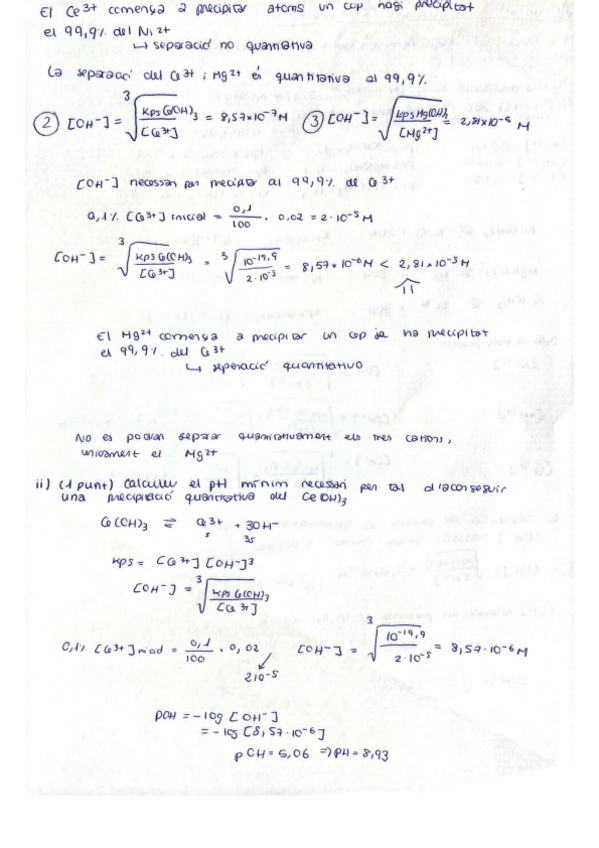 El Ce3+ comença a precipitar abans un cop hagi precipitat
el 99,9% del Ni2+
↳ separació no quantitativa
La separació del Ce3+ i Mg2+ és quantitativa al 99,9%.
② [OH-] = ∛(Kps Ce(OH)3 / [Ce3+]) = 8,57×10-7 M ③ [OH-] = √(Kps Mg(OH)2 / [Mg2+]) = 2,81×10-5 M
[OH-] necessari per precipitar al 99,9% de Ce3+
0,1% [Ce3+] inicial = 0,1/100 · 0,02 = 2·10-5 M
[OH-] = ∛(Kps Ce(OH)3 / [Ce3+]) = ∛(10-19,9 / 2·10-5) = 8,57×10-6 M < 2,81×10-5 M
El Mg2+ comença a precipitar un cop ja ha precipitat
el 99,9% del Ce3+
↳ separació quantitativa
No es podran separar quantitativament els tres cations,
unicament el Mg2+
ii) (1 punt) Calculeu el pH mínim necessari per tal d'aconseguir
una precipitació quantitativa del Ce(OH)3
Ce(OH)3 ⇌ Ce3+ + 3OH-
s 3s
Kps = [Ce3+] [OH-]3
[OH-] = ∛(Kps Ce(OH)3 / [Ce3+])
0,1% [Ce3+] inicial = 0,1/100 · 0,02 [OH-] = ∛(10-19,9 / 2·10-5) = 8,57·10-6 M
2·10-5
pOH = -log [OH-]
= -log [8,57·10-6]
pOH = 5,06 ⇒ pH = 8,93